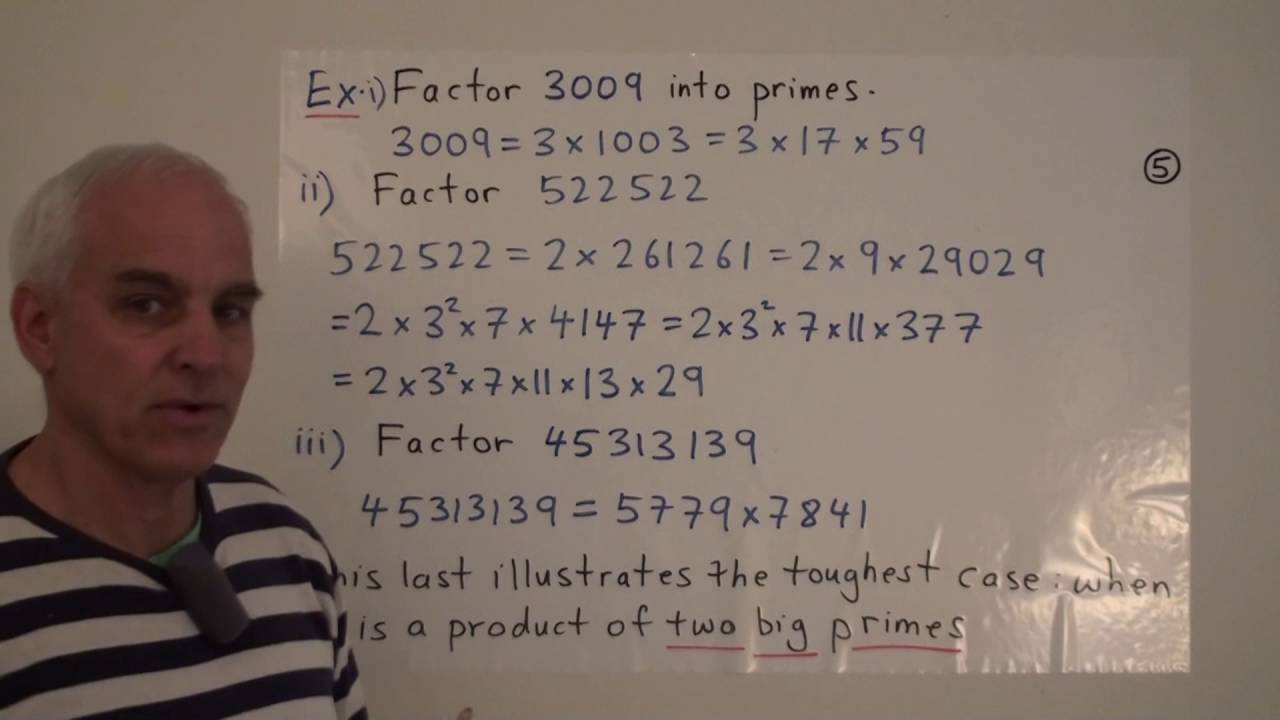 Ex. i) Factor 3009 into primes.
3009 = 3 × 1003 = 3 × 17 × 59
⑤
ii) Factor 522522
522522 = 2 × 261261 = 2 × 9 × 29029
= 2 × 3² × 7 × 4147 = 2 × 3² × 7 × 11 × 377
= 2 × 3² × 7 × 11 × 13 × 29
iii) Factor 45313139
45313139 = 5779 × 7841
his last illustrates the toughest case: when
is a product of two big primes